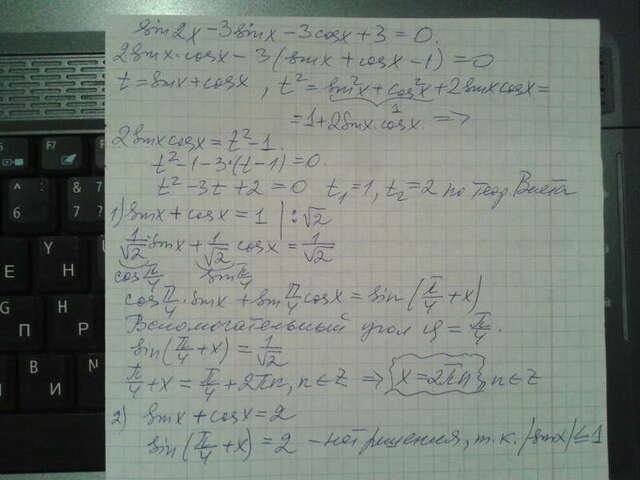 sin2x - 3sinx - 3cosx + 3 = 0.
2sinx·cosx - 3(sinx + cosx - 1) = 0
t = sinx + cosx , t² = sin²x + cos²x + 2sinxcosx =
1
= 1 + 2sinx·cosx. =>
2sinxcosx = t² - 1.
t² - 1 - 3·(t - 1) = 0.
t² - 3t + 2 = 0 t₁ = 1, t₂ = 2 по теор Виета
1) sinx + cosx = 1 | : √2
1/√2 · sinx + 1/√2 cosx = 1/√2
cos π/4 sin π/4
cos π/4 · sinx + sin π/4 cosx = sin(π/4 + x)
Вспомогательный угол φ = π/4.
sin(π/4 + x) = 1/√2
π/4 + x = π/4 + 2πn, n ∈ Z => x = 2πn, n ∈ Z
2) sinx + cosx = 2
sin(π/4 + x) = 2 - нет решения, т.к. |sinα| ≤ 1
F6
F7
6
&
7
Y
U
Н
П